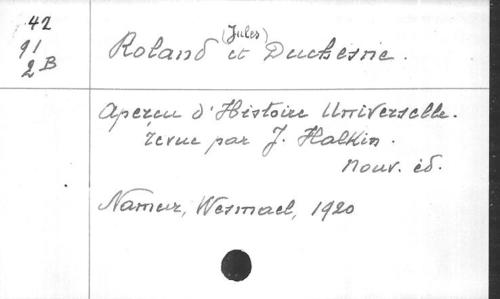 42
91
2B
(Jules)
Roland et Duchesne.
Aperçu d'Histoire Universelle.
revue par J. Halkin.
Nouv. éd.
Namur, Wesmael, 1920